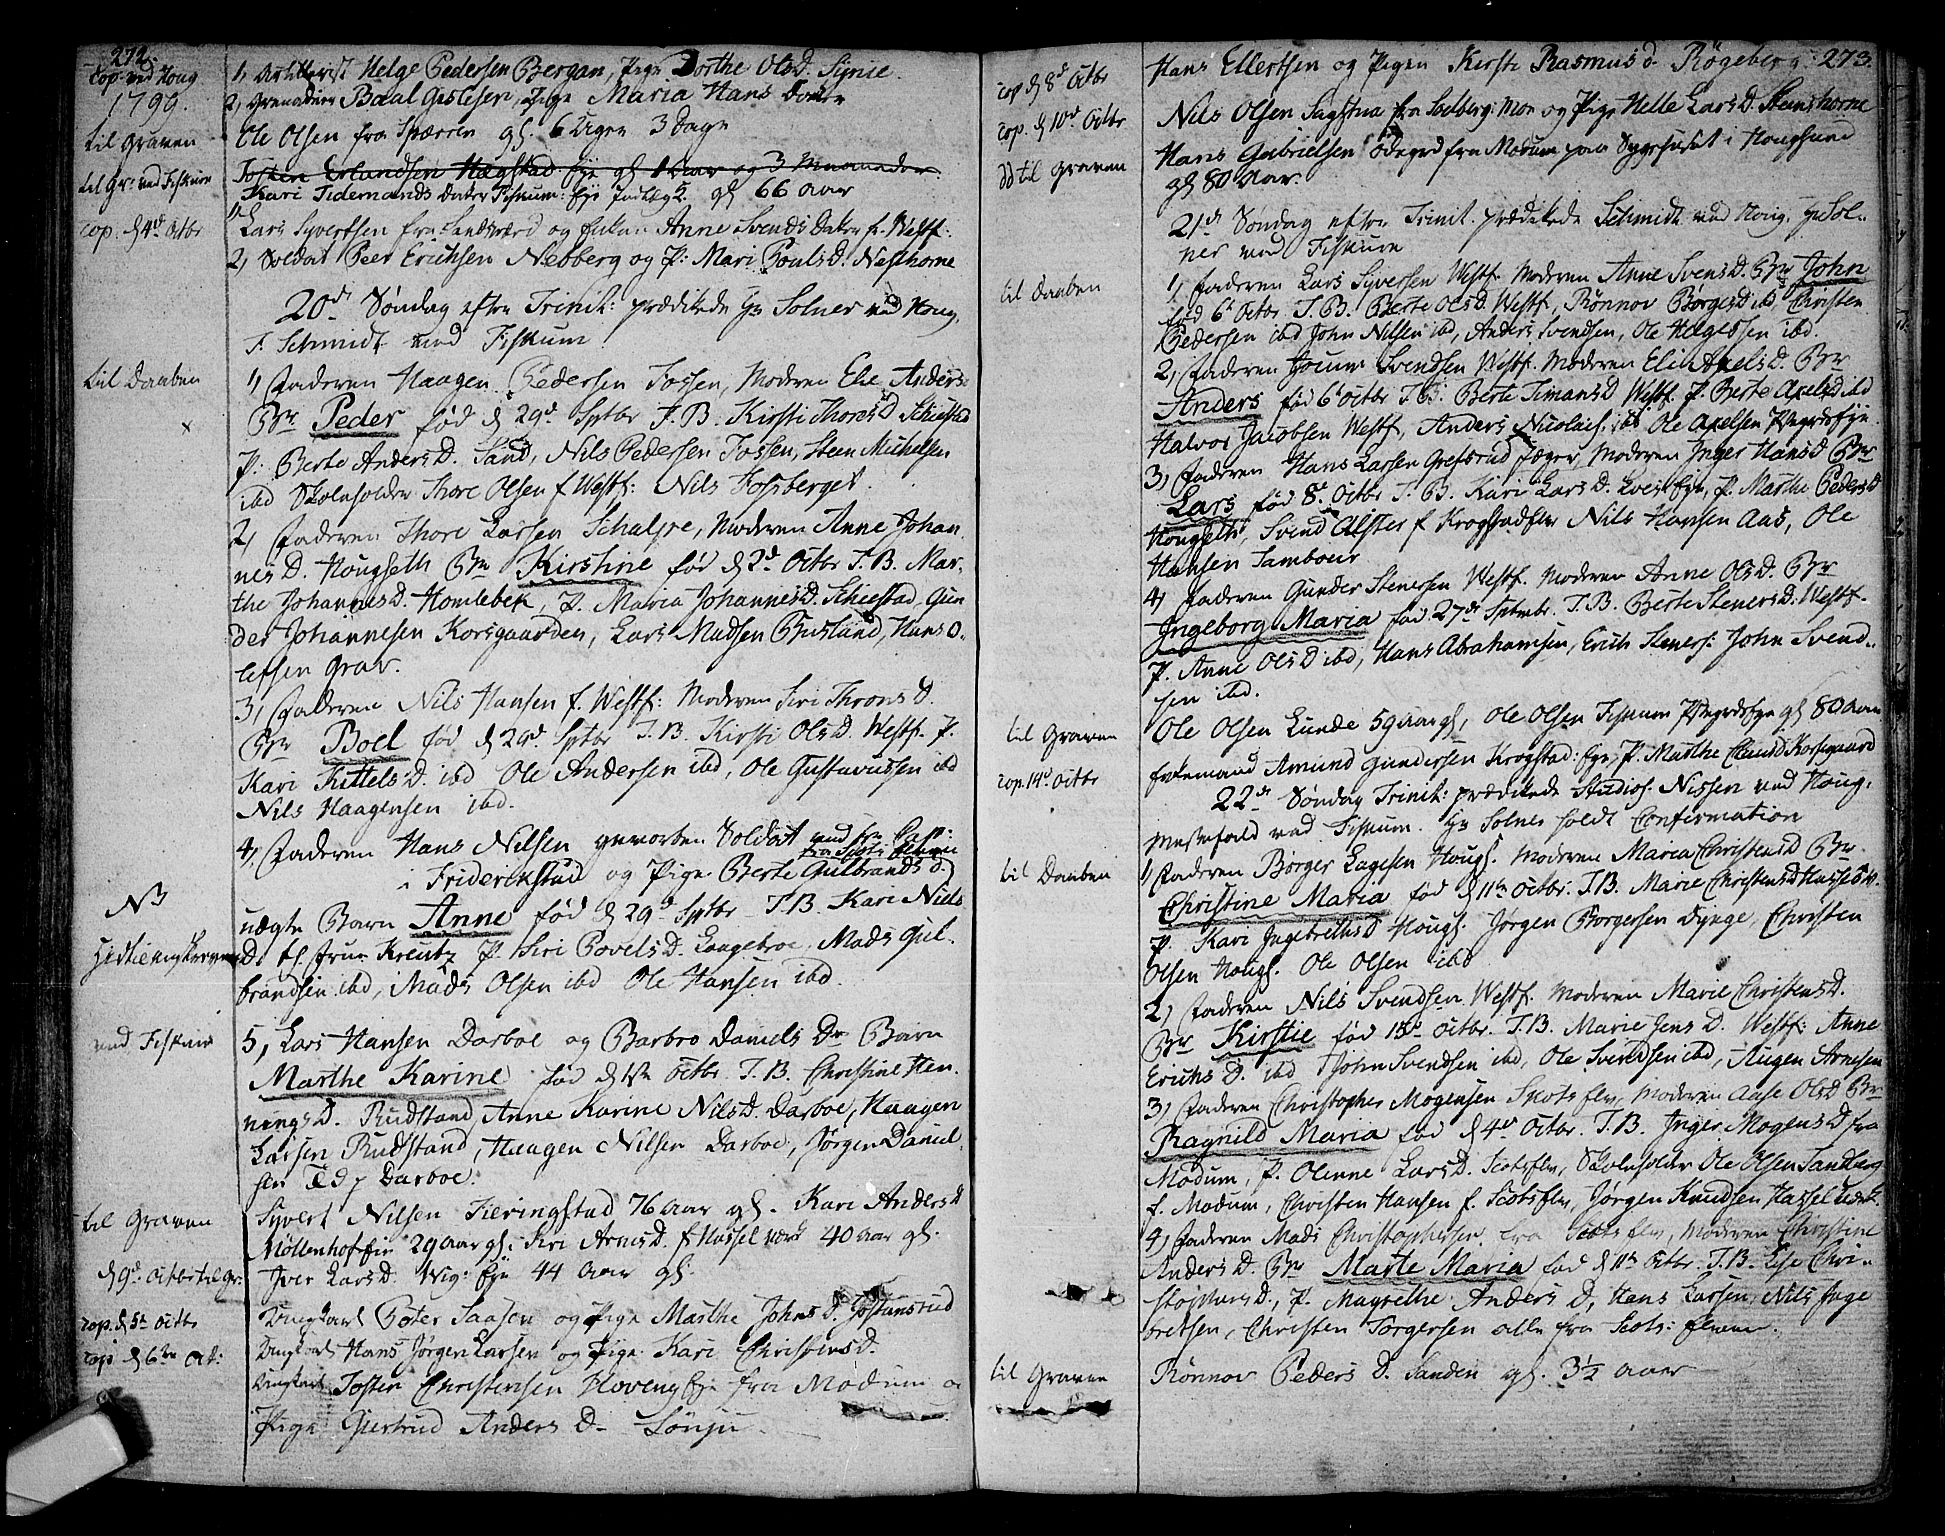 272.
cop. ved Houg
1799.
1, Artillerist Helge Pedersen Bergan, Pige Dorthe Ols D.
2, Grenadeer Baal Gislesen, Pige Maria Hans Dotter
til Graven
Ole Olsen fra Sperren gl. 6 Uger 3 Dage
til Gr. ved Fiskum
Kari Tidemands Dater Fiskum: Eje gl 66 aar
cop. d 4d Octbr
1, Lars Syvertsen fra Sandsværd og Enken Anne Svends Dater f. Westf.
2, Soldat Peer Erichsen Nebberg og P: Mari Pouls D. Næsthorne
20de Søndag efter Trinit: prædikede Hr Solner ved Houg,
S. Schmidt ved Fiskum
til Daaben
1, Faderen Haagen Pedersen Fossen, Moderen Else Anders
Br Peder fød d 29d Sptbr F. B. Kirsti Thores D Schiestad
P: Berte Anders D. Sand, Nils Pedersen Fossen, Steen Michelsen
ibd Skoleholder Thore Olsen f Westf: Nils Fossberget.
2, Faderen Thore Larsen Schalsre, Moderen Anne Johan
nis D. Hougseth Bn Kirstine fød d 2d Octbr F. B. Mar-
the Johannes D. Homlebek, P. Maria Johannes D. Schiestad, Gun
der Johannesen Korsgaarden, Lars Madsen Buland, Hans O-
lefsen Grav.
3, Faderen Nils Hansen f. Westf: Moderen Siri Throns D.
Br Boel fød d 29d Sptbr F. B. Kirsti Ols D. Westf. P.
Kari Kittels D. ibd Ole Andersen ibd, Ole Gustavussen ibd
Nils Haagensen ibd.
4, Faderen Hans Nilsen gevorben Soldat ved
i Friderikstad og Pige Berte Gulbrands D.
NB
uægte Barn Anne fød d 29d Sptbr F. B. Kari Niels
D. til Frue Kreutz P. Siri Povels D. Laagebroe, Mads Gul-
brandsen ibd, Mads Olsen ibd Ole Hansen ibd.
ved Fiskum
5, Lars Hansen Darboe og Barbro Daniels Dr Barn
Marthe Karine fød d 1te Octbr. F. B. Christine Hen
nings D. Rudstand, Anne Karine Nils D. Darboe, Haagen
Larsen Rudstand, Haagen Nilsen Darboe, Jørgen Daniel
sen Darboe.
til Graven
Syvert Nilsen Fieringstad 76 aar gl. Kari Anders D
Møllenhof Eje 29 aar gl. Siri Arnes D. f Hassel værk 40 aar gl.
d 9d. Octbr til Gr.
Iver Lars D. Wig: Eje 44 Aar gl.
cop. d 5te Octbr
Ungkarl Peter Saasen og Pige Marthe Johns D. Jostansrud
cop d 6te Oct:
Ungkarl Hans Jørgen Larsen og Pige Kari Christens D.
Ungkarl Josten Christensen Hoveng Eje fra Modum o
Pige Giertrud Anders D. Lønju
273.
cop d 8d Octbr
Hans Ellertsen og Pigen Kirsti Rasmus d. Røgeberg
cop. d 10d Octbr
Nils Olsen Sagstua fra Sollberg: Mon og Pige Helle Lars D. Steenshorne
dd til Graven
Hans Gabrielsen Ødegrd fra Modum paa Sygehuset i Hougsund
gl 80 Aar.
21de Søndag efter Trinit. prædikede Schmidt ved Houg, Hr Sol-
ner ved Fiskum
til Daaben
1, Faderen Lars Syversen Westf. Moderen Anne Svens D. Br John
fød 6t Octbr F. B. Berte Ols D. Westf, Rønnov Børges D ibd, Christen
Pedersen ibd John Nilsen ibd, Anders Svendsen, Ole Hagessen ibd.
2, Faderen Joeum Svendsen Westf. Moderen Eli Axels D. Br
Anders fød 6t Octbr F. B. Berte Timans D Westf. P. Berte Axels D ibd
Halvor Jacobsen Westf, Anders Nicolais: ibd Ole Axelsen Pstegrds Eje.
3, Faderen Hans Larsen Grefsrud Jæger, Moderen Inger Hans D Br
Lars fød 8d Octbr F. B. Kari Lars D. Eje, P. Marthe Peders D
Hougseth, Svend Alster f Krogstadflv Nils Hansen Aas, Ole
Hansen Tambour
4, Faderen Gunder Stenersen Westf. Moderen Anne Ols D. Br
Ingeborg Maria fød 27de Sptmbr. F. B. Berte Steners D. Westf.
P. Anne Ols D ibd, Hans Abrahamsen, Erich Steners: John Svend-
sen ibd.
til Graven
Ole Olsen Lunde 59 aar gl, Ole Olsen Fiskum Pstegrds Eje gl 80 Aar
cop. 14d Octbr
Enkemand Amund Gundersen Krogstad: Eje, P. Marthe Claus D Korsgaard
22de Søndag Trinit: prædikede Studios: Nissen ved Houg,
Messefald ved Fiskum. Hr Solner holdt Confirmation
til Daaben
1, Faderen Børger Lagesen Hougs. Moderen Maria Christens D Br.
Christine Maria fød d 11te Octbr. F. B. Marie Christens D Hassel v.
P. Kari Ingebreths D Hougs. Jørgen Borgersen Dynge, Christen
Olsen Hougs. Ole Olsen ibd
2, Faderen Nils Svendsen Westf. Moderen Marie Christens D.
Br Kirstie fød 13d Octbr. F. B. Marie Jens D. Westf: Anne
Erichs D. ibd John Svendsen ibd, Ole Svendsen ibd, Haagen Arnesen
3, Faderen Christopher Mogensen Skots elv, Moderen Aase Ols D Br
Ragnild Maria fød d 4de Octbr. F. B. Inger Mogens D fra
Modum, P. Olenne Lars D. Scotselv, Skoleholder Ole Olsen Sandberg
f. Modum, Christen Hansen f. Scotselv, Jørgen Knudsen Hasselværk
4, Faderen Mads Christophersen fra Scots elv, Moderen Christine
Anders D. Br Marte Maria fød d 11te Octbr. F. B. Lise Chri-
stophers D., P. Magrethe Anders D, Hans Larsen, Nils Inge
bretsen, Christen Torgersen alle fra Scots: Elven.
til Graven
Rønnov Peders D. Sanden gl. 3½ aar